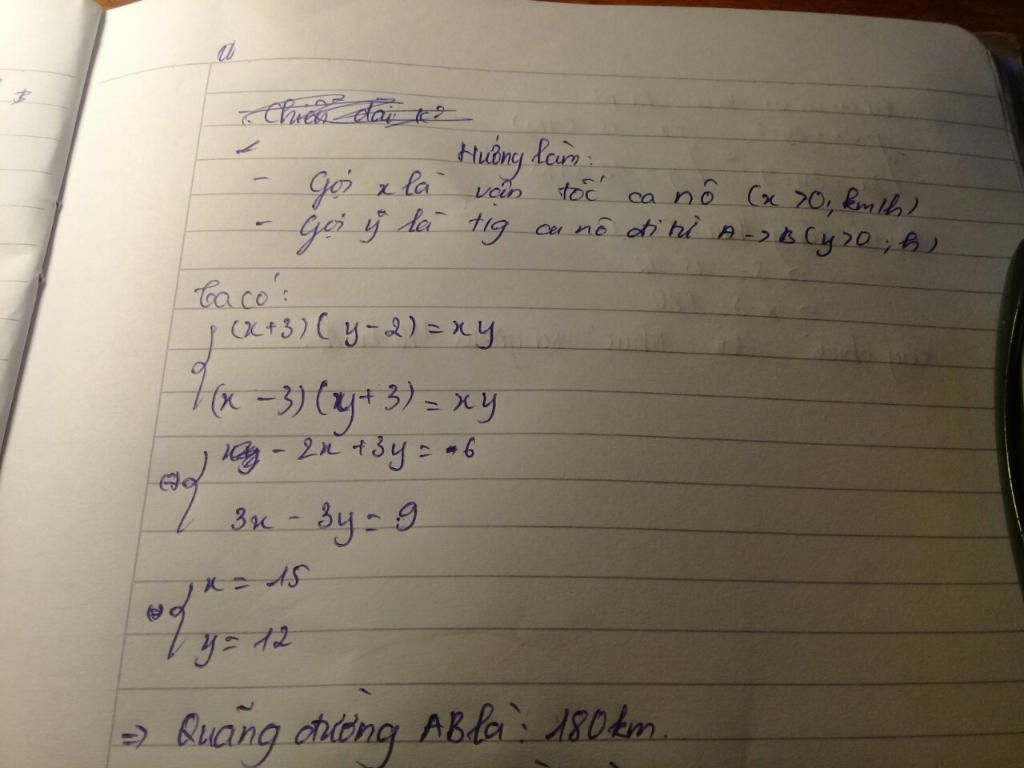 Hướng làm:
- Gọi x là vận tốc ca nô (x > 0; km/h)
- Gọi y là t/g ca nô đi từ A -> B (y > 0; h)
Ta có:
{ (x + 3) ( y - 2) = xy
(x - 3) (y + 3) = xy
<=> { - 2x + 3y = 6
3x - 3y = 9
<=> { x = 15
y = 12
=> Quãng đường AB là: 180 km.